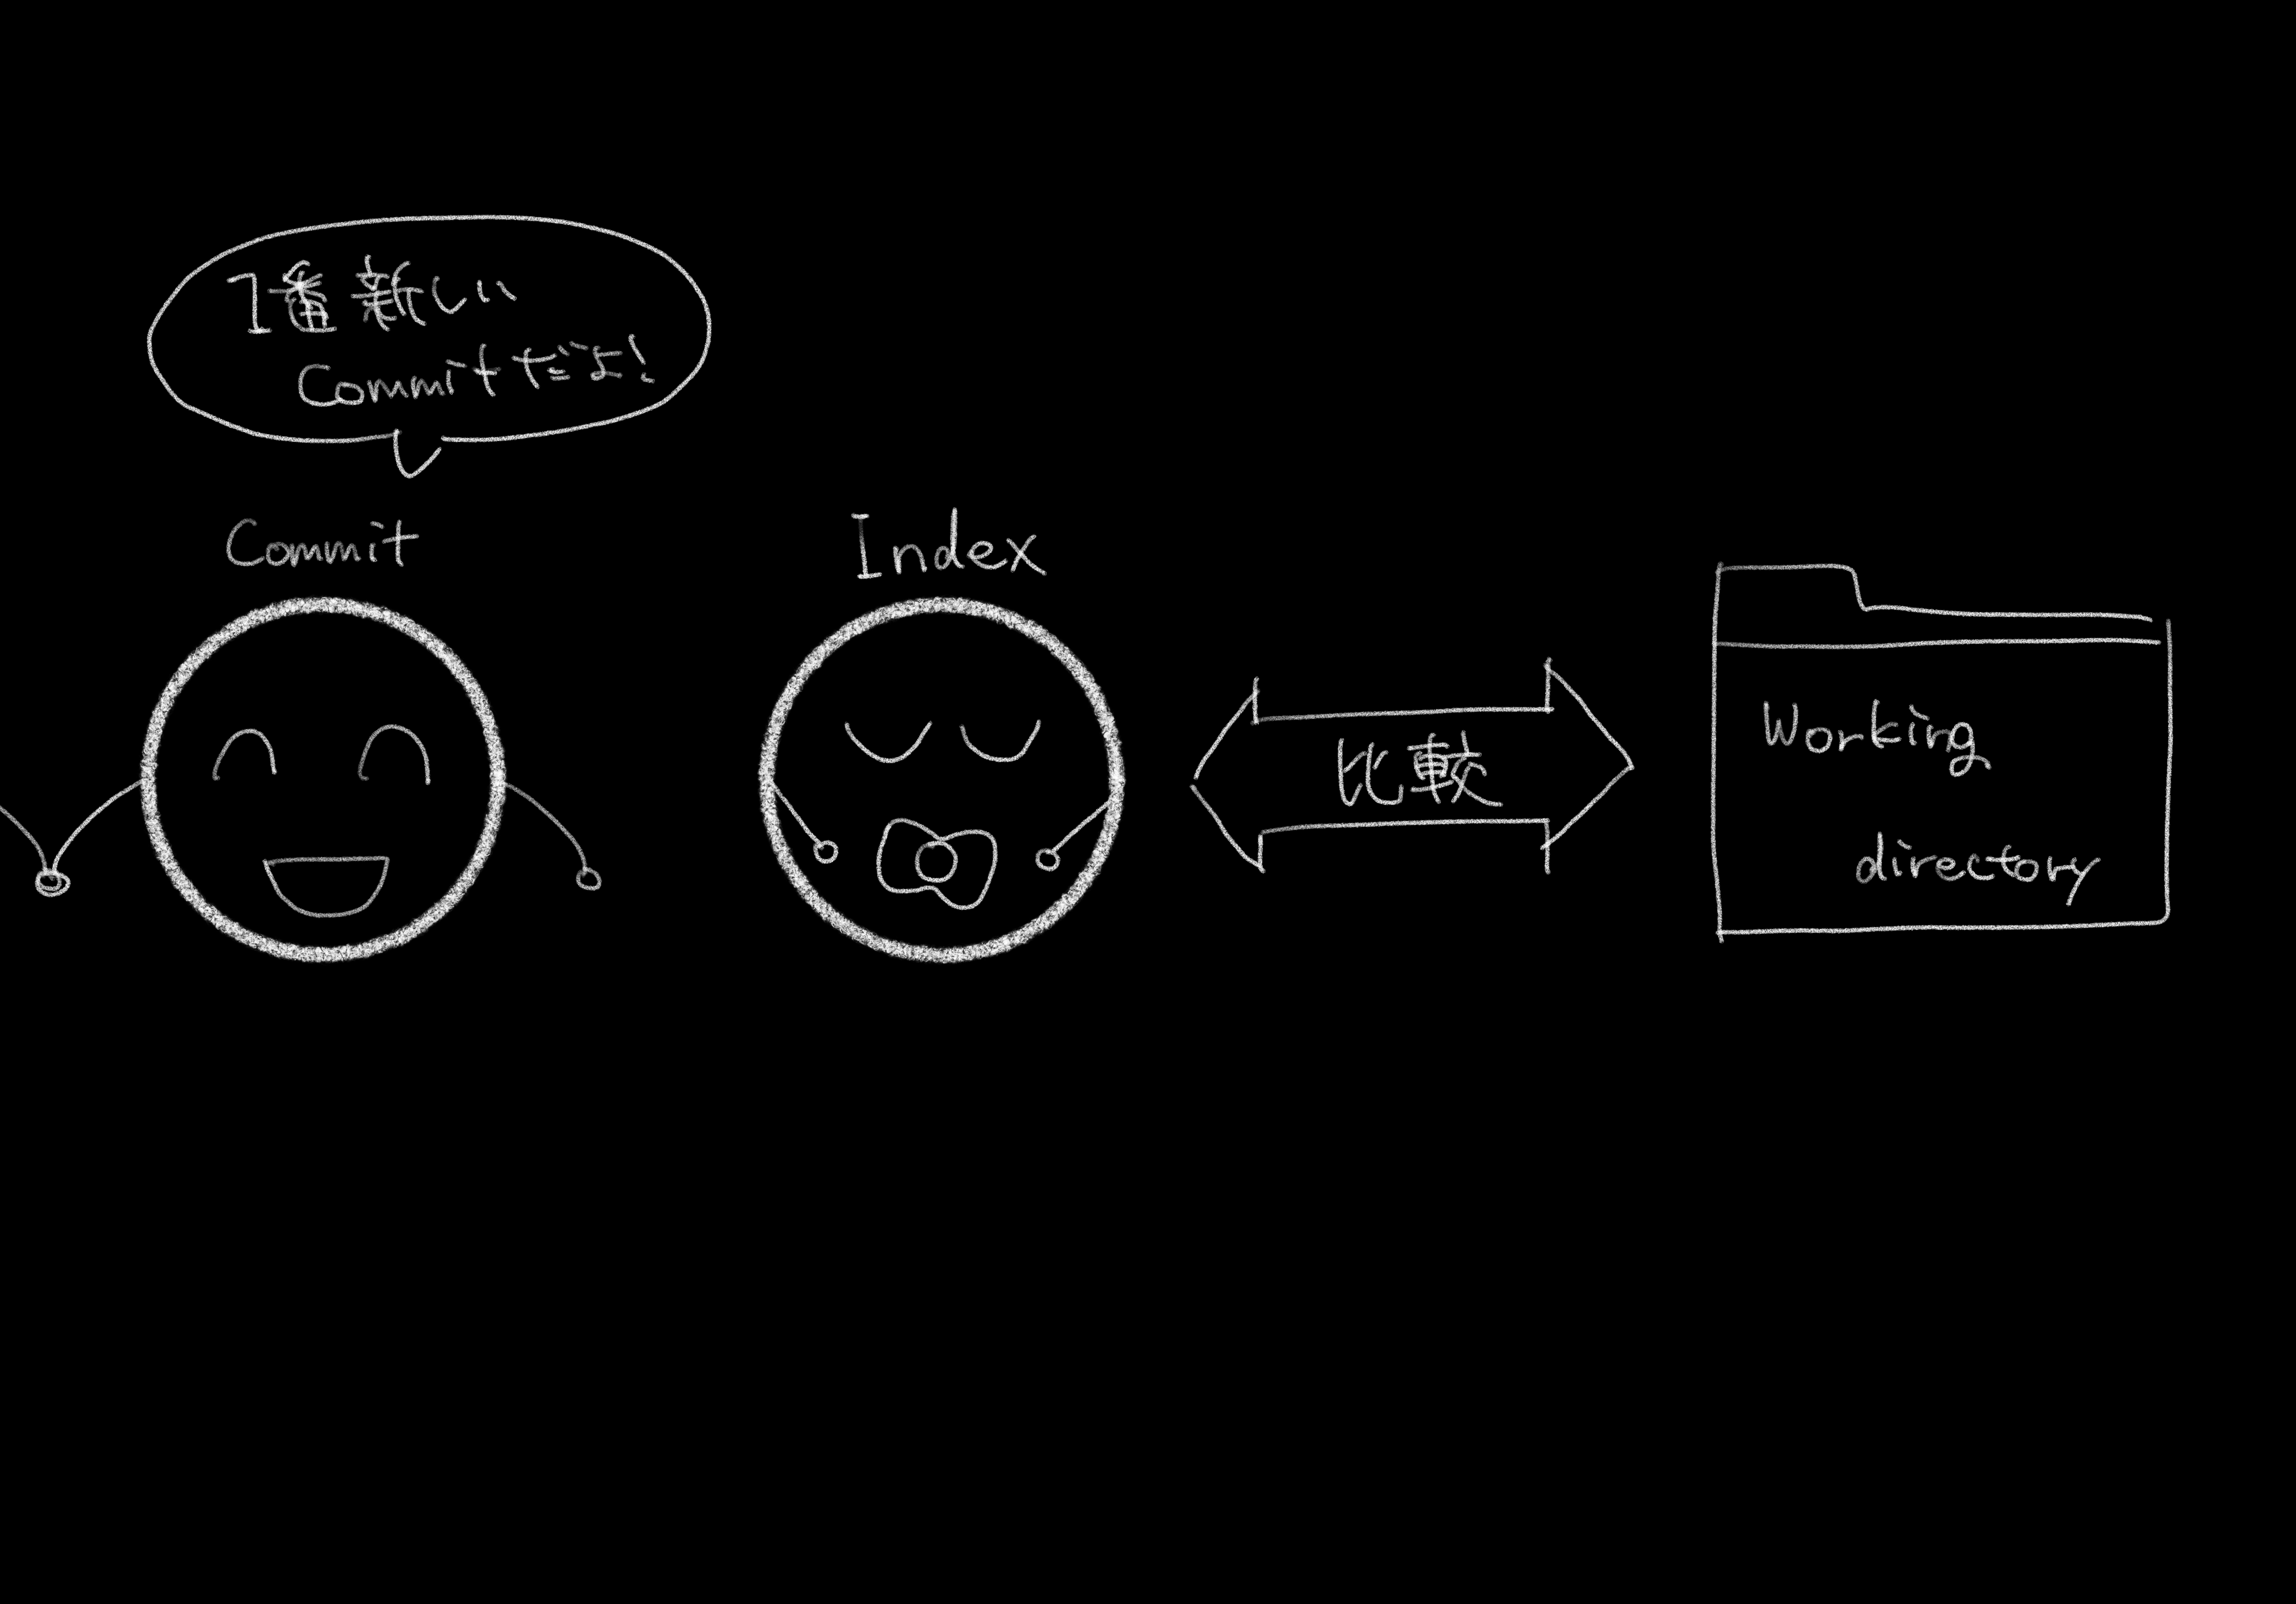 1番新しい
Commitだよ!
Commit
Index
比較
Working
directory